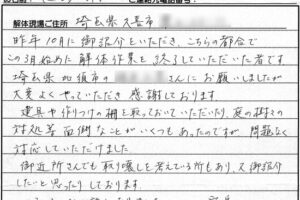 解体現場ご住所 埼玉県久喜市
昨年10月に御紹介をいただき、こちらの都合で
この3月始めに解体作業を終了していただいた者です。
埼玉県加須市の さんにお願いしましたが
大変よくやっていただき感謝しております。
建具や作りつけの棚を取っておいていただいたり、庭の樹々の
対処等面倒なことがいくつもあったのですが問題なく
対応していただけました。
御近所さんでも取り壊しを考えている所もあり、又御紹介
したいと思ったりしております。